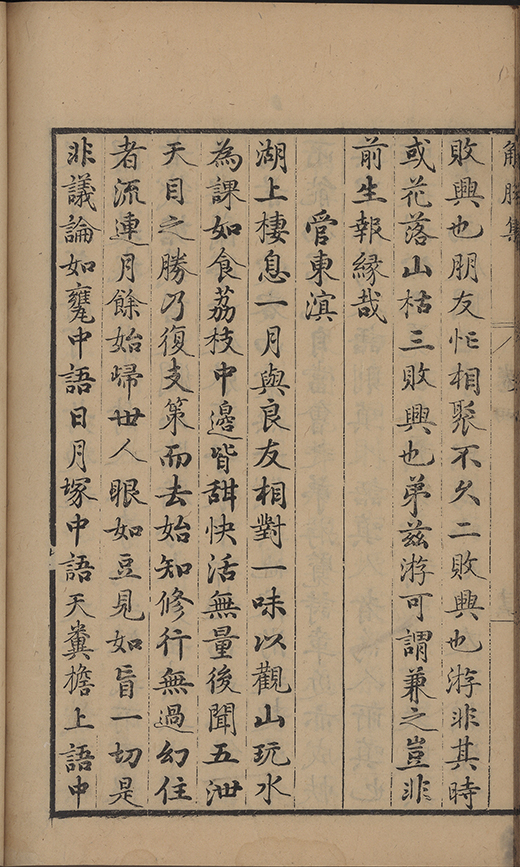 解脫集
敗興也朋友忙相聚不久二敗興也游非其時
或花落山枯三敗興也弟兹游可謂兼之豈非
前生報緣哉
管東溟
湖上棲息一月與良友相對一味以觀山玩水
為課如食荔枝中邊皆甜快活無量後聞五泄
天目之勝乃復支策而去始知修行無過幻住
者流連月餘始歸世人眼如豆見如盲一切是
非議論如甕中語日月塚中語天糞檐上語中